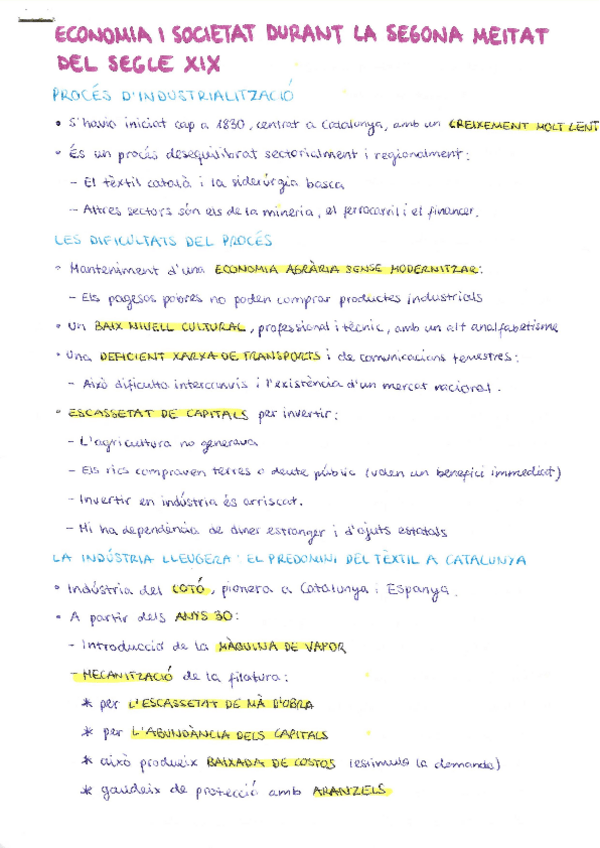 ECONOMIA I SOCIETAT DURANT LA SEGONA MEITAT
DEL SEGLE XIX
PROCÉS D'INDUSTRIALITZACIÓ
• S'havia iniciat cap a 1830, centrat a Catalunya, amb un CREIXEMENT MOLT LENT
• És un procés desequilibrat sectorialment i regionalment:
- El tèxtil català i la siderúrgia basca
- Altres sectors són els de la mineria, el ferrocarril i el financer.
LES DIFICULTATS DEL PROCÉS
• Manteniment d'una ECONOMIA AGRÀRIA SENSE MODERNITZAR:
- Els pagesos pobres no poden comprar productes industrials
• Un BAIX NIVELL CULTURAL, professional i tècnic, amb un alt analfabetisme
• Una DEFICIENT XARXA DE TRANSPORTS i de comunicacions terrestres:
- Això dificulta intercanvis i l'existència d'un mercat nacional.
• ESCASSETAT DE CAPITALS per invertir:
- L'agricultura no generava
- Els rics compraven terres o deute públic (volen un benefici immediat)
- Invertir en indústria és arriscat.
- Hi ha dependència de diner estranger i d'ajuts estatals
LA INDÚSTRIA LLEUGERA: EL PREDOMINI DEL TÈXTIL A CATALUNYA
• Indústria del COTÓ, pionera a Catalunya i Espanya.
• A partir dels ANYS 30:
- Introducció de la MÀQUINA DE VAPOR
- MECANITZACIÓ de la filatura:
* per L'ESCASSETAT DE MÀ D'OBRA
* per L'ABUNDÀNCIA DELS CAPITALS
* això produeix BAIXADA DE COSTOS (estimula la demanda)
* gaudeix de protecció amb ARANZELS